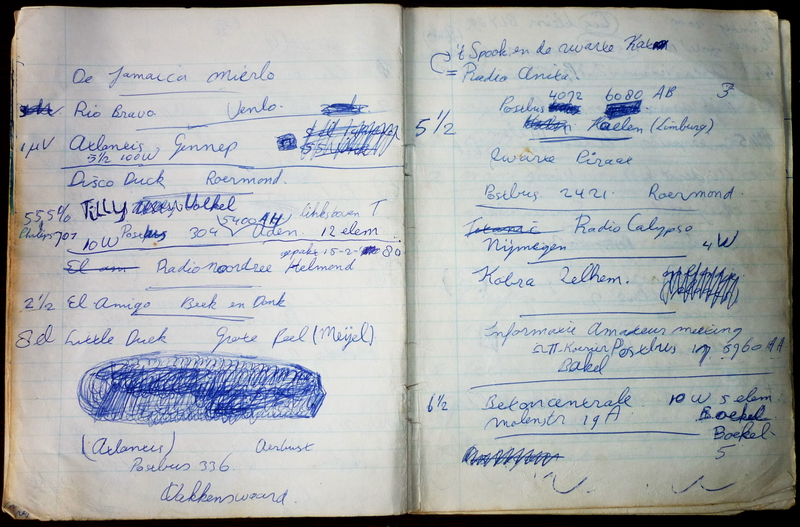 De Jamaica Mierlo
Rio Bravo Venlo.
1 µV Atlantis Gennep
5 1/2 100W
Disco Duck Roermond.
Tilly Volkel
5400 AH
Philips 707 10W Postbus 304 Uden. 12 elem
15-2-80
El am Radio noordzee Helmond
2 1/2 El Amigo Beek en Donk
8d Little Duck Grote Peel (Meijel)
(Atlantis) Aerbust
Postbus 336
Valkenswaard.
't Spook en de zwarte Kater
= Radio Anita
Postbus 4072 6080 AB 3
5 1/2 Haelen (Limburg)
Zwarte Piraat
Postbus 2421 Roermond.
Titanic Radio Calypso
Nijmegen 4W
Kobra Zelhem.
Informatie Amateur meeting
Postbus 19 5760 AA
Bakel
6 1/2 Betoncentrale 10W 5 elem
Molenstr 19A Boekel
Boekel
5